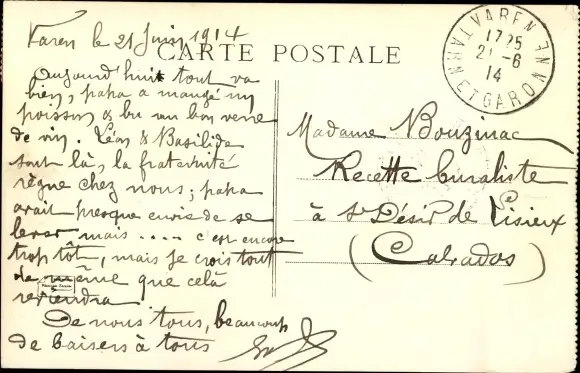 Varen le 21 Juin 1914
CARTE POSTALE
Aujourd'huit tout va
bien, papa a mangé un
poisson & bu un bon verre
de vin. Léon & Basilide
sont là, la fraternité
règne chez nous; papa
avait presque envie de se
lever mais .... c'est encore
trop tôt, mais je crois tout
de même que celà
reviendra
De nous tous, beaucoup
de baisers à tous
VAREN
17 25
21 - 6
14
TARN ET GARONNE
Madame Bouzinac
Recette buraliste
à St Désir de Lisieux
(Calvados)